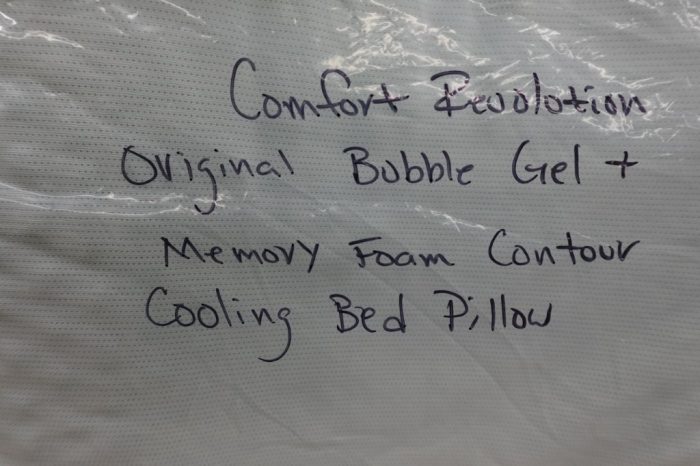 Comfort Revolution
Original Bubble Gel +
Memory Foam Contour
Cooling Bed Pillow